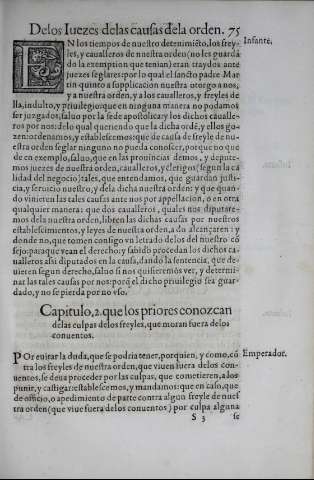 Delos Iuezes delas causas dela orden. 75
EN los tiempos de nuestro detenimiẽto, los frey-
les, y cauaualleros de nuestra orden (no les guardã
do la exemption que tenian) eran traydos ante
juezes seglares: por lo qual el sancto padre Mar
tin quinto a supplicacion nuestra otorgo a nos,
y a nuestra orden, y a los caualleros, y freyles de
lla, indulto, y priuilegio: que en ninguna manera no podamos
ser juzgados, saluo por la sede apostolica: y los dichos cáualle-
ros por nos: delo qual queriendo que la dicha ordẽ, y ellos go-
zen: ordenamos, y establescemos: que de causa de freyle de nue
stra orden seglar ninguno no pueda conoscer, porque no que
de en exemplo, saluo, que en las prouincias demos, y depute-
mos juezes de nuestra orden, caualleros, y clerigos (segun la ca
lidad del negocio) tales, que entendamos, que guardan justi-
cia, y seruicio nuestro, y dela dicha nuestra orden: y que quan-
do vinieren las tales causas ante nos por appellacion, o en otra
qualquier manera: que dos caualleros, quales nos diputare-
mos dela nuestra orden, libren las dichas causas por nuestros
establescimientos, y leyes de nuestra orden, a do alcançaren: y
donde no, que tomen consigo vn letrado delos del nuestro cõ
sejo: para que vean el derecho: y sabido procedan los dichos ca-
ualleros assi diputados en la causa, dando la sentencia, que de-
uieren segun derecho, saluo si nos quisieremos ver, y determi-
nar las tales causas por nos: porq̃ el dicho priuilegio sea guar-
dado, y no se pierda por vso.
Infante.
Capitulo, 2. que los priores conozcan
delas culpas delos freyles, que moran fuera delos
conuentos.
POr euitar la duda, que se podria tener, por quien, y como, cõ
tra los freyles de nuestra orden, que viuen fuera delos con-
uentos, se deua proceder por las culpas, que cometieren, a los
punir, y castigar: establescemos, y mandamos: que en caso, que
de officio, o a pedimiento de parte contra algun freyle de nues
tra orden (que viue fuera delos conuentos) por culpa alguna
Emperador.
S 3 se